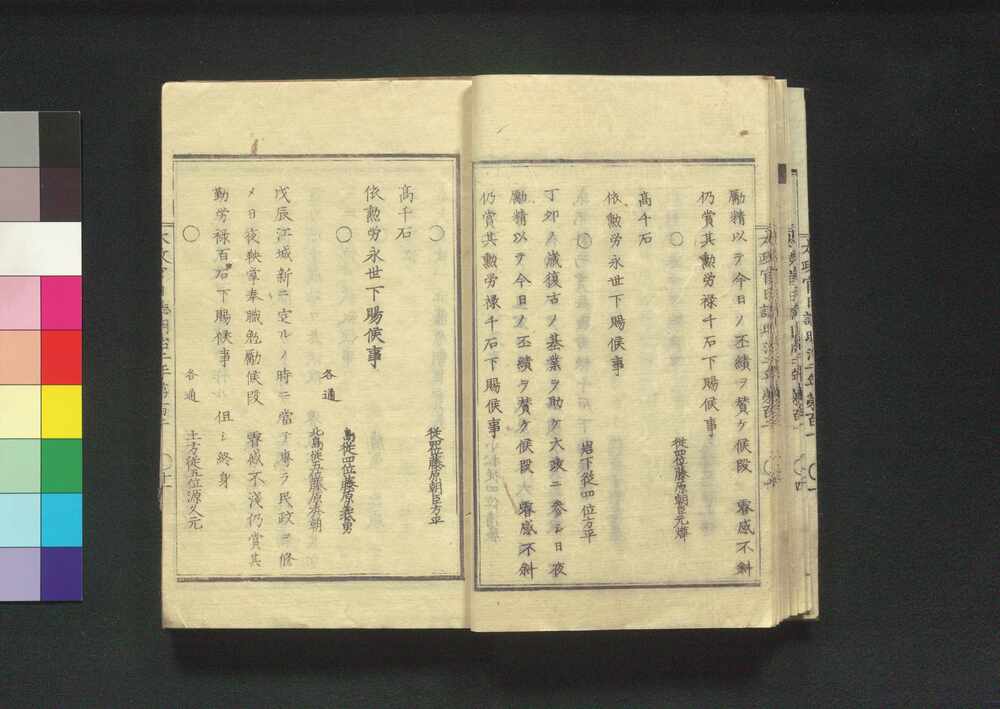 勵精以テ今日ノ丕績ヲ賛ケ候段 叡感不斜
仍賞其勲労禄千石下賜候事
○ 従四位藤原朝臣元燁
高千石
依勲労永世下賜候事
○ 岩下従四位方平
丁卯ノ歳復古ノ基業ヲ助ケ大政ニ参シ日夜
勵精以テ今日ノ丕績ヲ賛ケ候段 叡感不斜
仍賞其勲労禄千石下賜候事
○ 従四位藤原朝臣方平
高千石
依勲労永世下賜候事
○ 各通 島従四位藤原義勇
北島従五位藤原秀朝
戊辰江城新ニ定ルノ時ニ當テ専ラ民政ヲ修
メ日夜鞅掌奉職勉勵候段 叡感不淺仍賞其
勤労禄百石下賜候事 但シ終身
○ 各通 土方従五位源久元
太政官日誌明治二年第百一